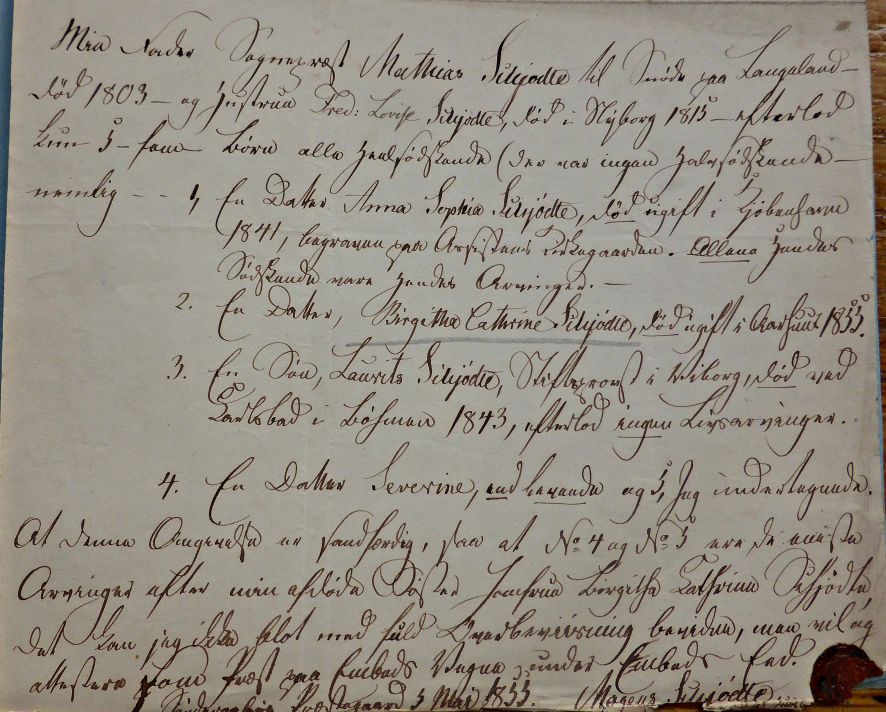 Min Fader Sognepræst Mathias Schjødte til Snøde paa Langeland –
død 1803 – og Hustrue Fred: Lovise Schjødte, død i Nyborg 1815 – efterlod
kun 5 – fem – Børn alle Heelsødskende (der var ingen Halvsødskende –
nemlig – – 1, En Datter Anna Sophia Schjødte, død ugift i Kjøbenhavn
1841, begraven paa Assistens Kirkegaarden. Allene hendes
Sødskende vare hendes Arvinger. –
2. En Datter, Birgitha Cathrine Schjødte, død ugift i Aarhuus 1855.
3. En Søn, Laurits Schjødte, Stiftsprovst i Viborg, død ved
Carlsbad i Bøhmen 1843, efterlod ingen Livsarvinger.
4. En Datter Severine, endlevende og 5, Jeg undertegnede.
At denne Angivelse er sandfærdig, saa at No 4 og No 5 ere de eneste
Arvinger efter min afdøde Søster Jomfrue Birgitha Cathrine Schjødte
det kan jeg ikke blot med fuld Overbeviisning bevidne, men vil og
attestere som Præst paa Embeds Vegne under Embeds Eed.
Præstegaard 5 Mai 1855. Mogens Schjødte